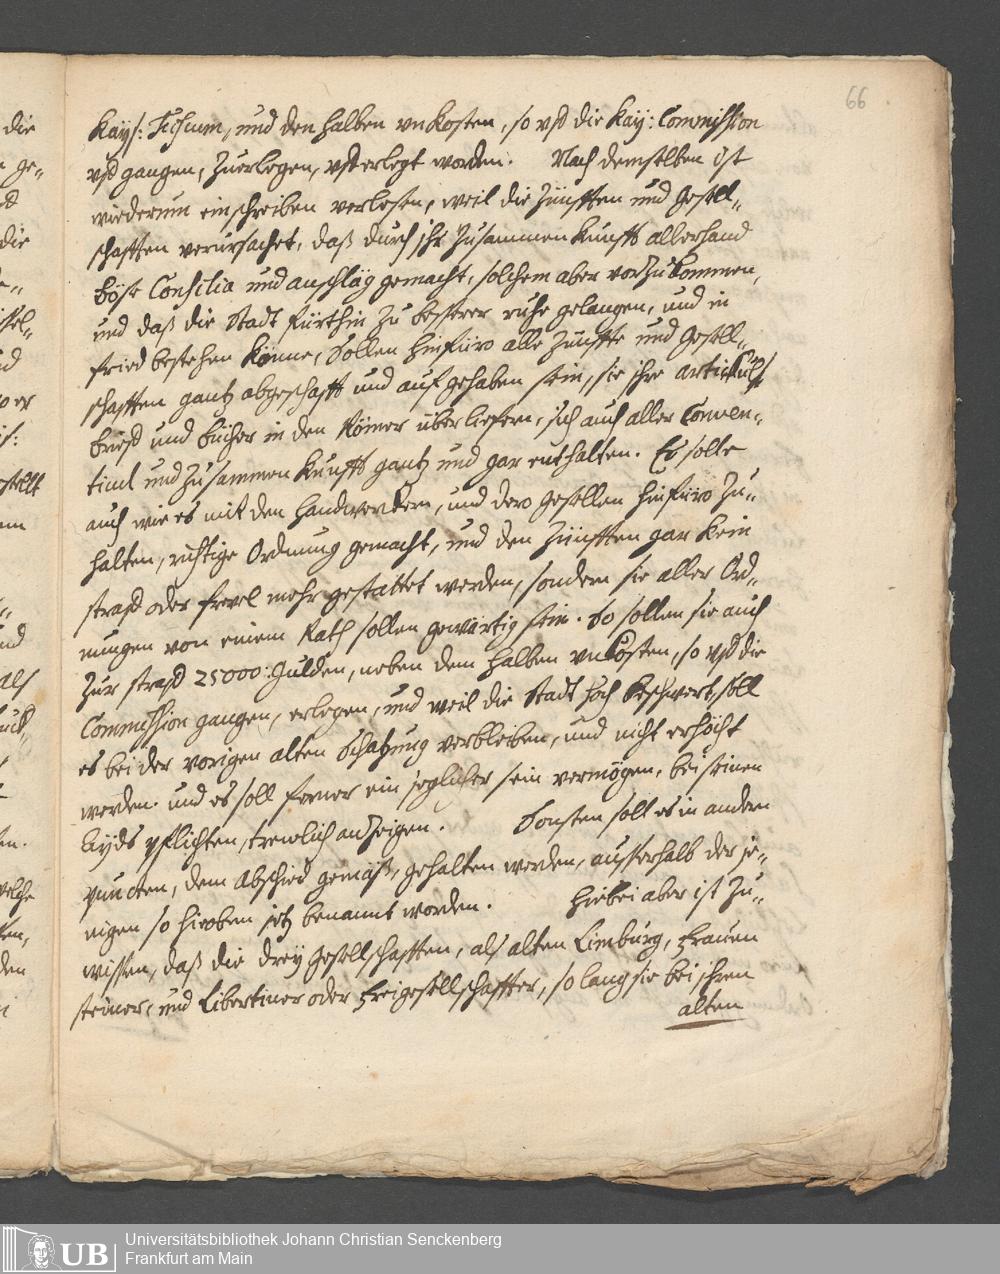 66
Kayß: Fiscum, und den halben unkosten, so vff die Kay: Commission
vff gangen, zuerlegen, vfferlegt worden. Nach demselben ist
wiederum ein schreiben verlesen, weil die Zünfften und Gesell„
schafften verursachet, daß durch ihr Zusammen Kunfft allerhand
böse Consilia und anschläg gemacht, solchem aber vorzukommen,
und daß die Stadt fürthin zu besserer ruhe gelangen, und in
fried bestehen könne, Sollen hinfüro alle Zünffte und Gesell„
schafften gantz abgeschafft und auf gehaben sein, sie ihre artickuls
brieff und bücher in den Römer überliefern, sich auch aller Conven„
ticul und Zusammen Kunfft gantz und gar enthalten. Es solle
auch wie es mit den Handwerckern, und dero gesellen hinfüro zu„
halten, richtige Ordnung gemacht, und den Zünfften gar kein
straff oder frevel mehr gestattet werden, sondern sie aller Ord„
nungen von einem Rath sollen gewärtig sein. So sollen sie auch
zur straff 25000: Gulden, neben dem halben unkosten, so vff die
Commission gangen, erlegen, und weil die Stadt hoch beschwert, soll
es bei der vorigen alten Schatzung verbleiben, und nicht erhöcht
werden. und es soll ferner ein jeglicher sein vermögen, bei seinen
Eyds pflichten, trewlich anzeigen. Sonsten soll es in andern
puncten, dem Abschied gemäß, gehalten werden, ausserhalb der je„
nigen so hieoben jetz benannt worden. Hiebei aber ist zu„
wissen, daß die drey Gesellschafften, als alten Limburg, Frauen
steiner, und Libertiner oder Freigesellschaffter, so lang sie bei ihren
alten
die
ge„
die
und
als
welche
den
UB Universitätsbibliothek Johann Christian Senckenberg
Frankfurt am Main